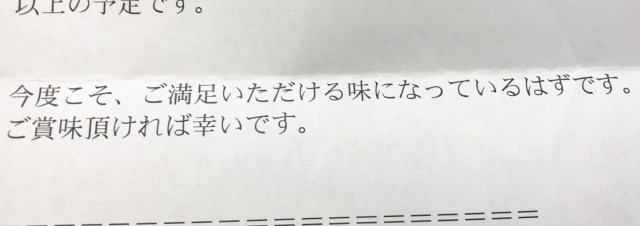 以上の予定です。
今度こそ、ご満足いただける味になっているはずです。
ご賞味頂ければ幸いです。
===================